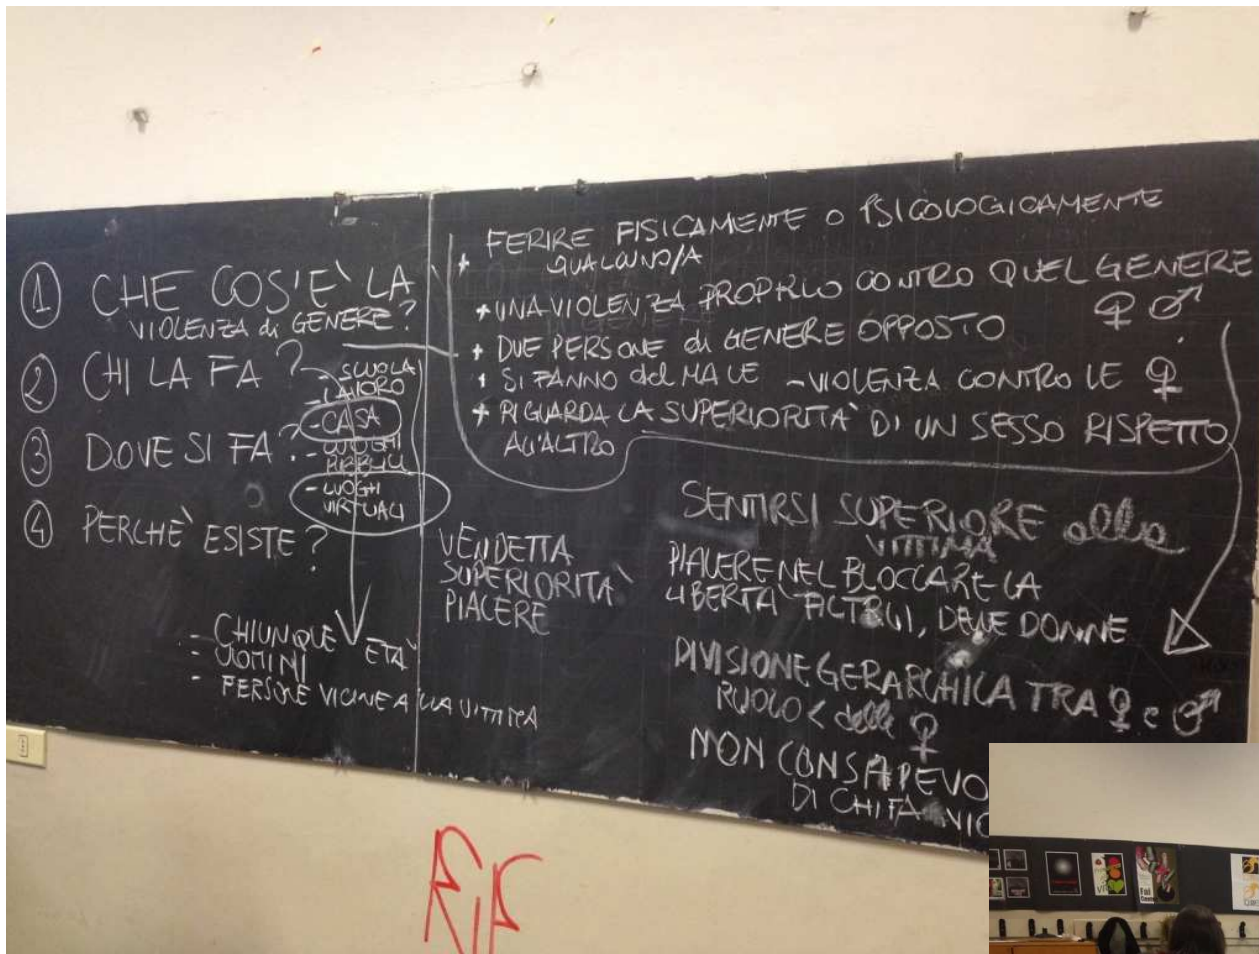 ① CHE COS'E' LA
VIOLENZA di GENERE?
② CHI LA FA?
③ DOVE SI FA?
④ PERCHE' ESISTE?
- SCUOLA
- LAVORO
- CASA
- LUOGHI
PUBBLICI
- LUOGHI
VIRTUALI
- CHIUNQUE ETA'
- UOMINI
- PERSONE VICINE ALLA VITTIMA
VENDETTA
SUPERIORITA'
PIACERE
+ FERIRE FISICAMENTE O PSICOLOGICAMENTE
QUALCUNO/A
+ UNA VIOLENZA PROPRIO CONTRO QUEL GENERE
♀ ♂
+ DUE PERSONE di GENERE OPPOSTO
+ SI FANNO del MALE - VIOLENZA CONTRO LE ♀
+ RIGUARDA LA SUPERIORITA' DI UN SESSO RISPETTO
ALL'ALTRO
SENTIRSI SUPERIORE alla
VITTIMA
PIACERE NEL BLOCCARE LA
LIBERTA' ALTRUI, DELLE DONNE
DIVISIONE GERARCHICA TRA ♀ e ♂
RUOLO < delle ♀
NON CONSAPEVO
DI CHI FA VIO
RIP